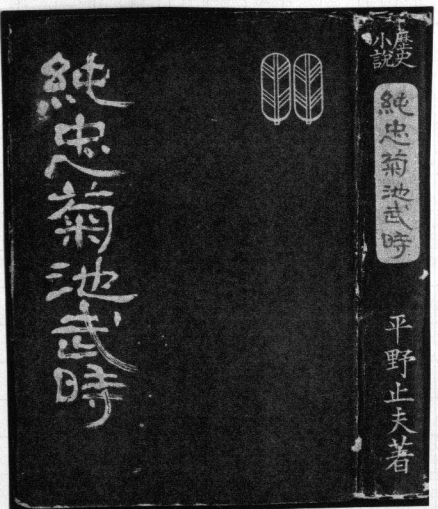 純忠菊池武時
歴史
小説
純忠菊池武時
平野止夫著